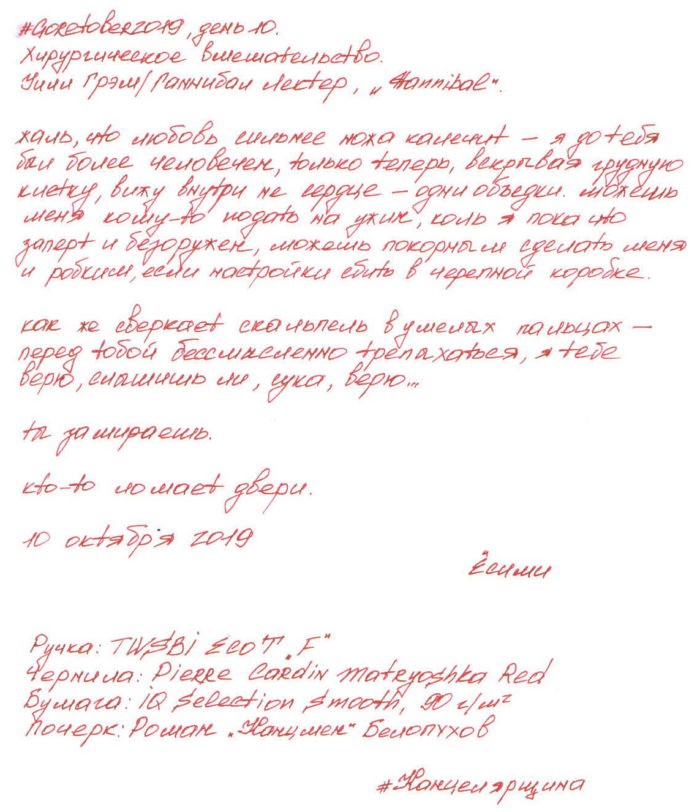 #Goretober2019, день 10.
Хирургическое вмешательство.
Уилл Грэм/Ганнибал Лектер, „Hannibal“.
жаль, что любовь сильнее ножа калечит — я до тебя
был более человечен, только теперь, вскрывая грудную
клетку, вижу внутри не сердце — одни объедки. можешь
меня кому-то подать на ужин, коль я пока что
заперт и безоружен, можешь покорным сделать меня
и робким, если настройки сбить в черепной коробке.
как же сверкает скальпель в умелых пальцах —
перед тобой бессмысленно трепыхаться, я тебе
верю, слышишь ли, сука, верю...
ты замираешь.
кто-то ломает двери.
10 октября 2019
Ёсими
Ручка: TWSBI ECO T „F“
Чернила: Pierre Cardin Matryoshka Red
Бумага: IQ Selection Smooth, 90 г/м²
Почерк: Роман „Канцмен“ Белопухов
#Канцелярщина